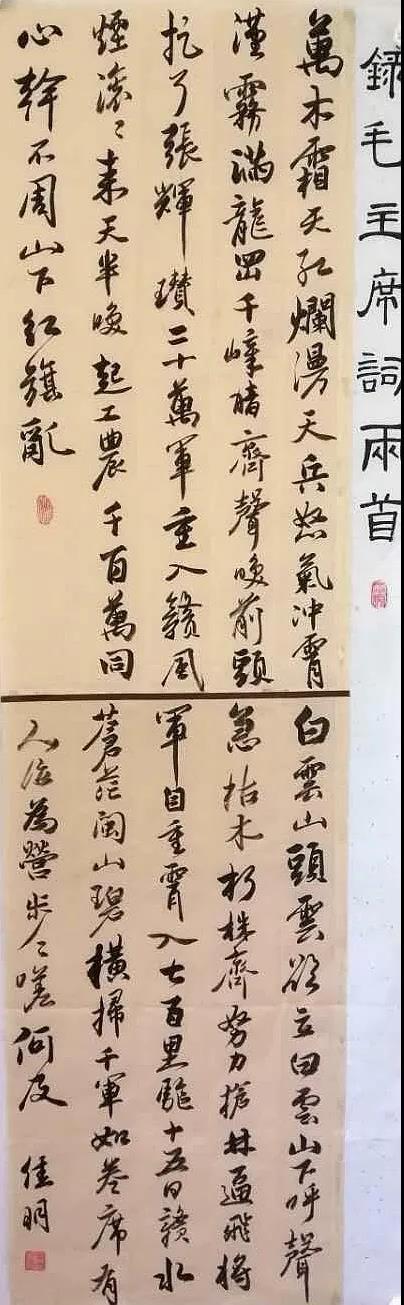 錄毛主席詞兩首
萬木霜天紅爛漫天兵怒氣沖霄
漢霧滿龍岡千嶂暗齊聲喚前頭
捉了張輝瓚二十萬軍重入贛風
煙滾々來天半喚起工農千百萬同
心幹不周山下紅旗亂
白雲山頭雲欲立白雲山下呼聲
急枯木朽株齊努力槍林逼飛將
軍自重霄入七百里驅十五日贛水
蒼茫閩山碧橫掃千軍如卷席有
人泣為營步々嗟何及
佳明